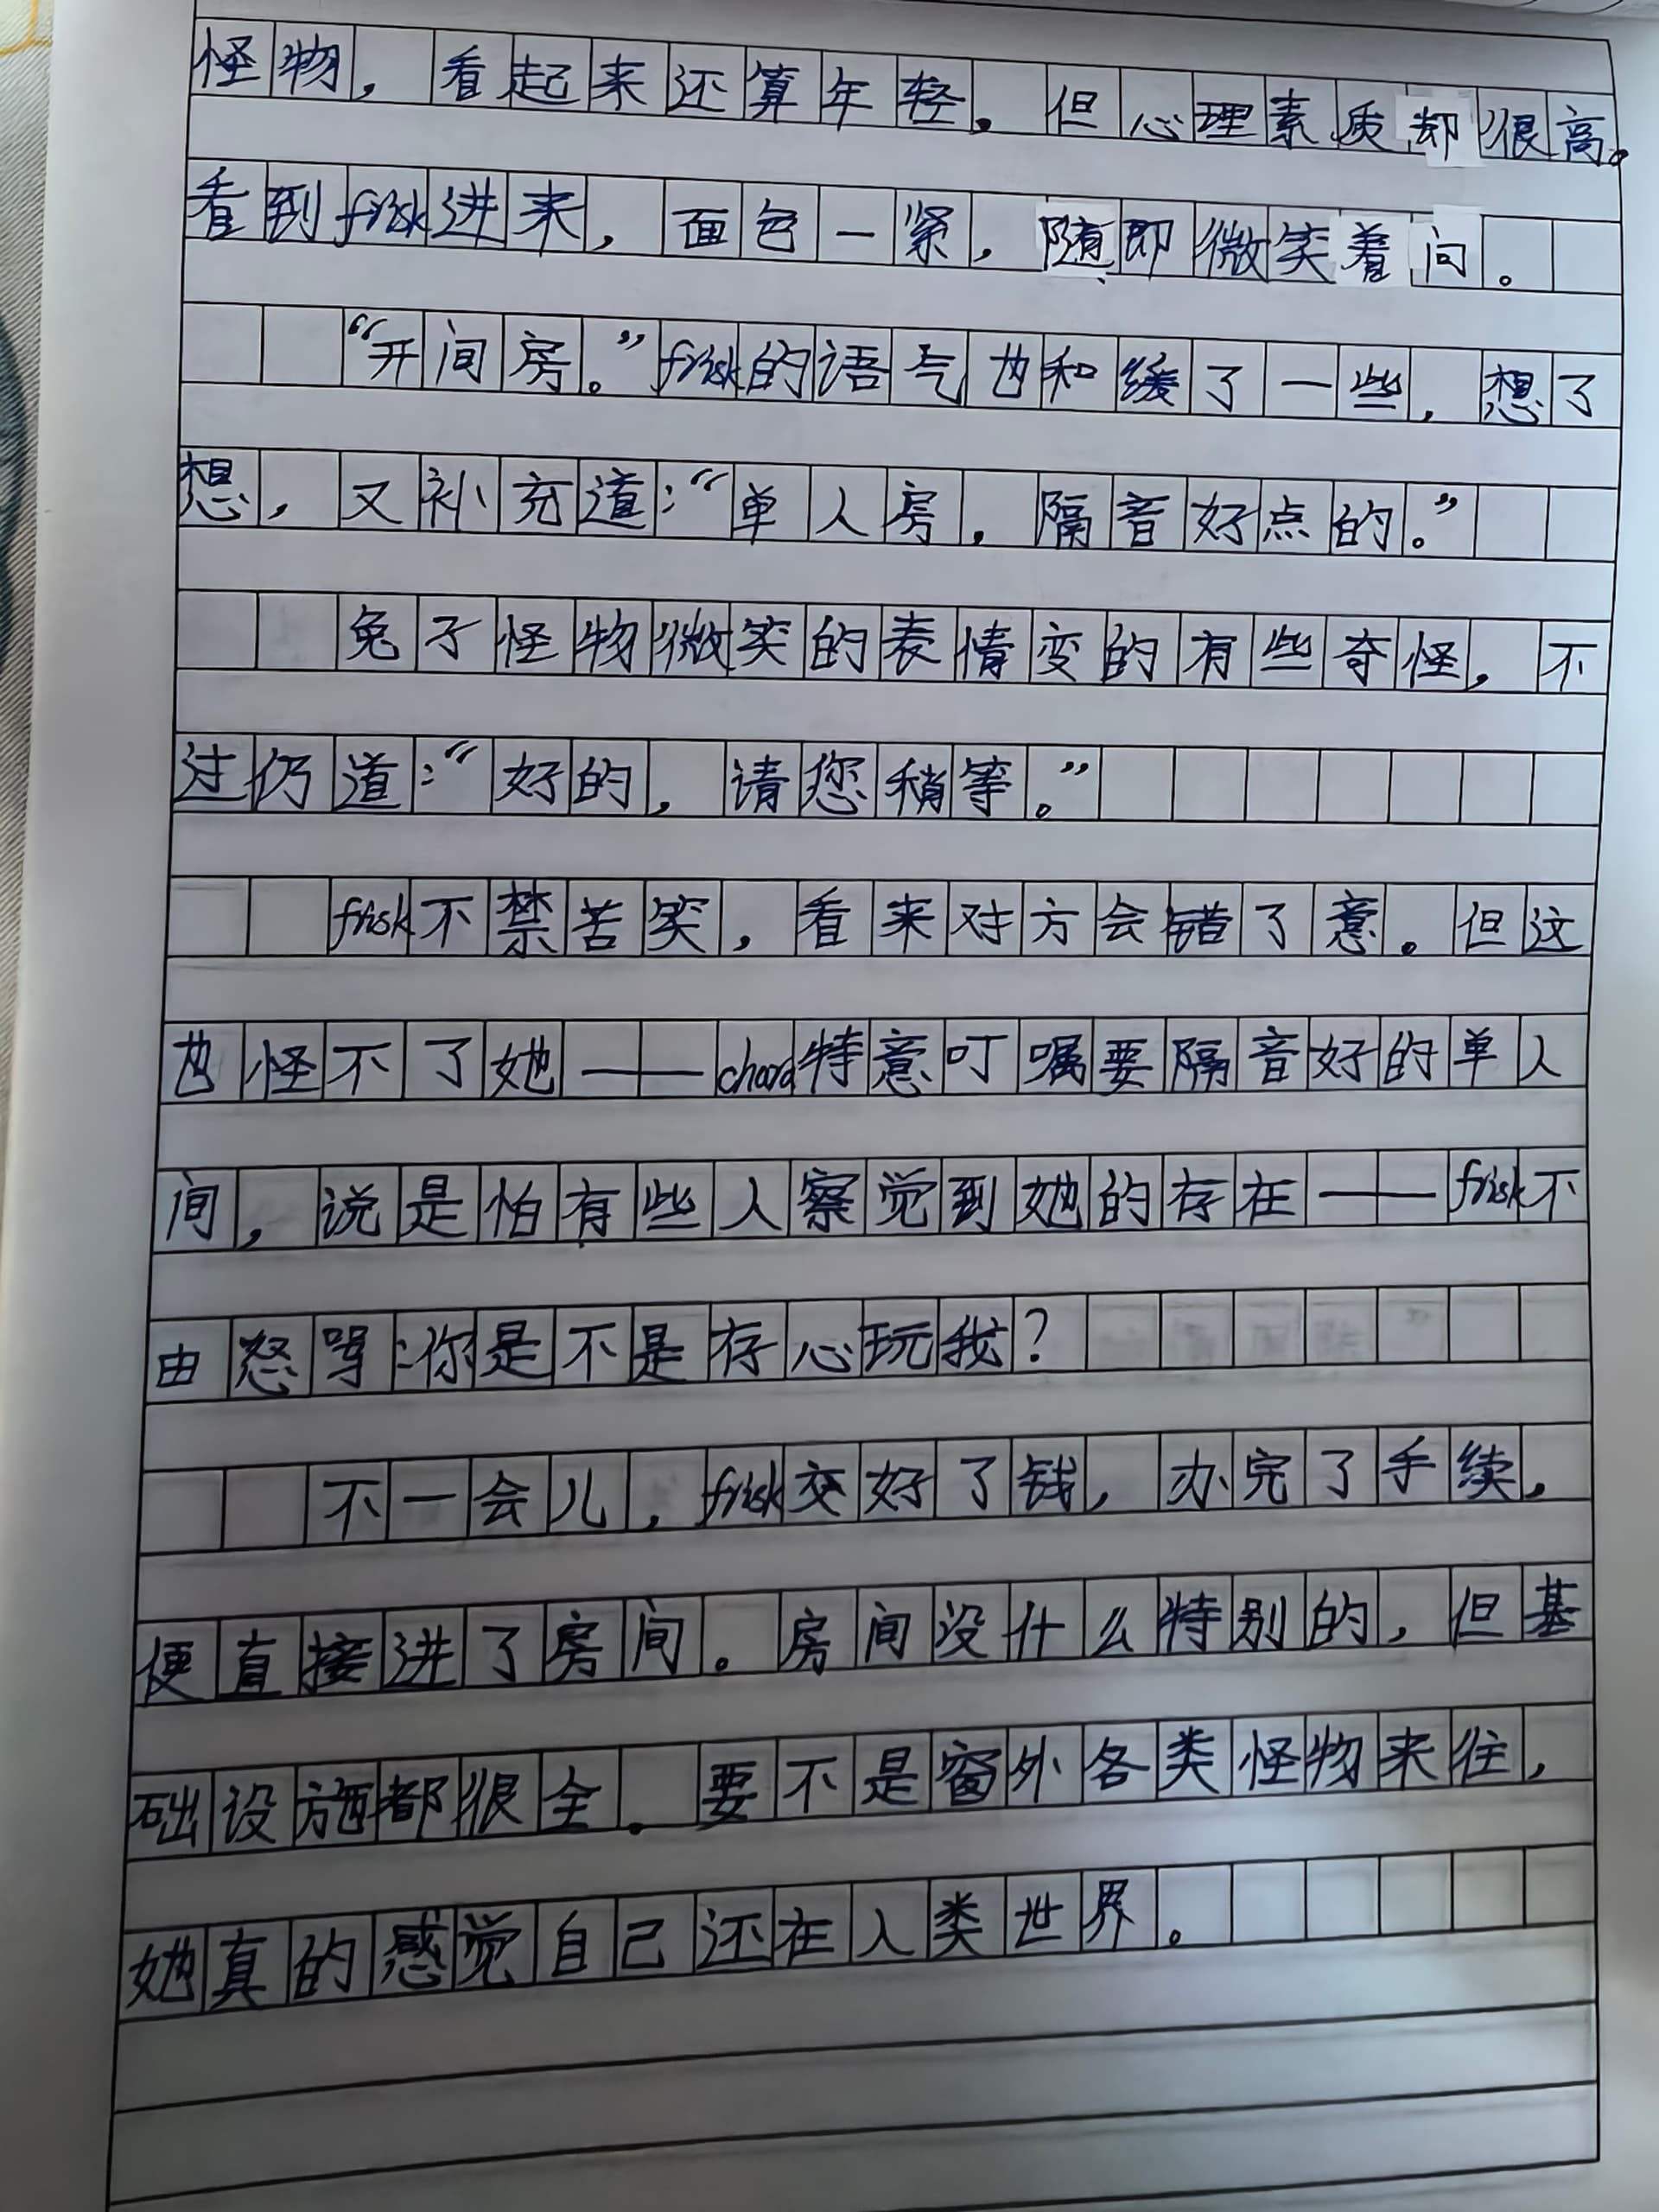 怪物，看起来还算年轻。但心理素质却很高。
看到frisk进来，面色一紧，随即微笑着问。
“开间房。”frisk的语气也和缓了一些，想了
想，又补充道：“单人房，隔音好点的。”
兔子怪物微笑的表情变的有些奇怪，不
过仍道：“好的，请您稍等。”
frisk不禁苦笑，看来对方会错了意。但这
也怪不了她——chara特意叮嘱要隔音好的单人
间，说是怕有些人察觉到她的存在——frisk不
由怒骂：你是不是存心玩我？
不一会儿，frisk交好了钱，办完了手续，
便直接进了房间。房间没什么特别的，但基
础设施都很全。要不是窗外各类怪物来往，
她真的感觉自己还在人类世界。